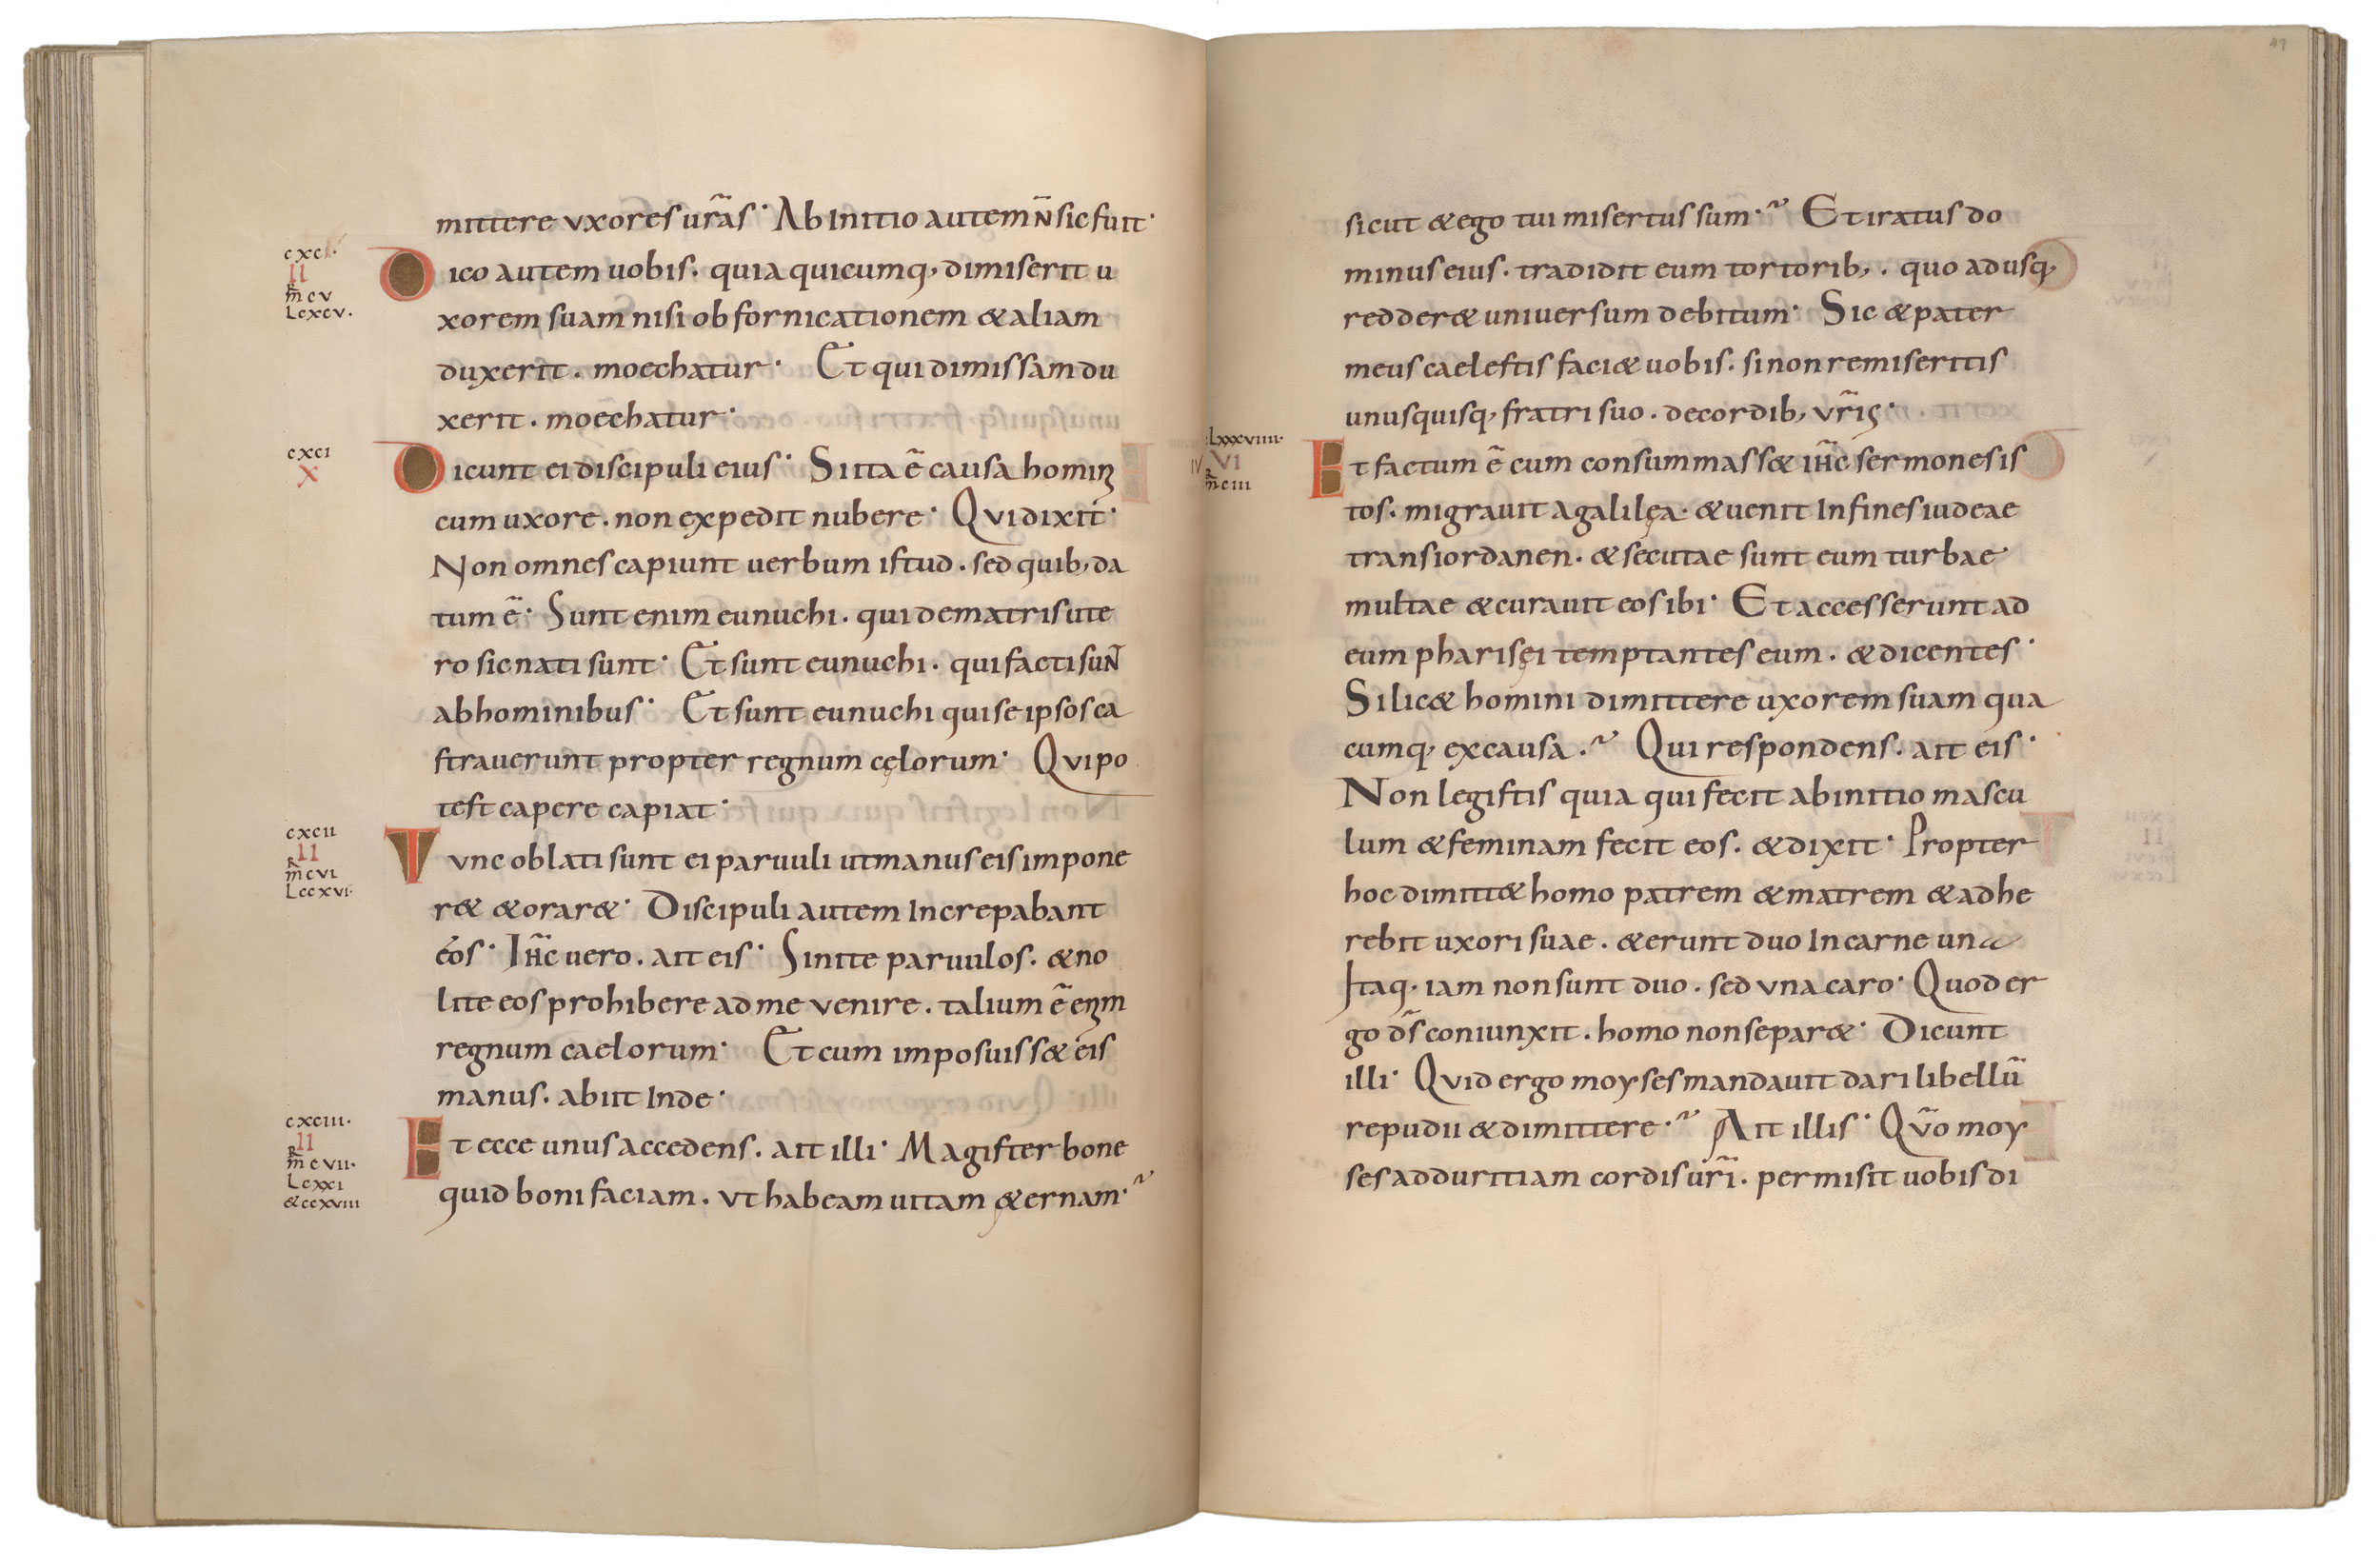 mittere uxores ur̃as· Ab initio autem n̄ sic fuit·
cxc·
II
R
m̄ cv
Lcxcv.
Dico autem uobis. quia quicumq; dimiserit u
xorem suam nisi ob fornicationem & aliam
duxerit. moechatur· Et qui dimissam du
xerit. moechatur·
cxci
X
Dicunt ei discipuli eius· Si ita ē causa homin
cum uxore. non expedit nubere· Qui dixit·
Non omnes capiunt uerbum istud. sed quib; da
tum ē· Sunt enim eunuchi. qui de matris ute
ro sic nati sunt· Et sunt eunuchi. qui facti suN̄
ab hominibus· Et sunt eunuchi qui se ipsos ca
straverunt propter regnum cęlorum· Qui po
test capere capiat·
cxcii
II
R
m̄ cvi
Lccxvi·
Tunc oblati sunt ei paruuli ut manus eis impone
r& & orar&· Discipuli autem increpabant
eos· Ih̄c uero. ait eis· Sinite paruulos. & no
lite eos prohibere ad me venire. talium ē eni̅m
regnum caelorum· Et cum imposuiss& eis
manus. abiit inde·
cxciii·
II
R
m̄ cvii·
Lcxxi
&ccxviii
Et ecce unus accedens. ait illi· Magister bone
quid boni faciam. ut habeam uitam &ernam·~
47
sicut & ego tui misertus sum·~ Et iratus do
minus eius. tradidit eum tortorib;. quo adusq;
redder& uniuersum debitum· Sic & pater
meus caelestis faci& uobis. si non remiseritis
unusquisq; fratri suo. de cordib; vr̃is·
Lxxxviiii·
IV VI
R
m̄ ciii
Et factum ē cum consummass& ih̄c sermones is
tos. migrauit a galilęa· & uenit in fines iudeae
trans iordanen. & secutae sunt eum turbae
multae & curauit eos ibi· Et accesserunt ad
eum pharisęi temptantes eum. & dicentes·
Si lic& homini dimittere uxorem suam qua
cumq; ex causa.~ Qui respondens. ait eis·
Non legistis quia qui fecit ab initio mascu
lum & feminam fecit eos. & dixit· Propter
hoc dimitt& homo patrem & matrem & adhe
rebit uxori suae. & erunt duo in carne una
Itaq· iam non sunt duo. sed una caro· Quod er
go d̄s coniunxit. homo non separ&· Dicunt
illi· Quid ergo moyses mandauit dari libellū
repudii & dimittere·~ Ait illis· Qūo moy
ses ad duritiam cordis ur̃i. permisit uobis di